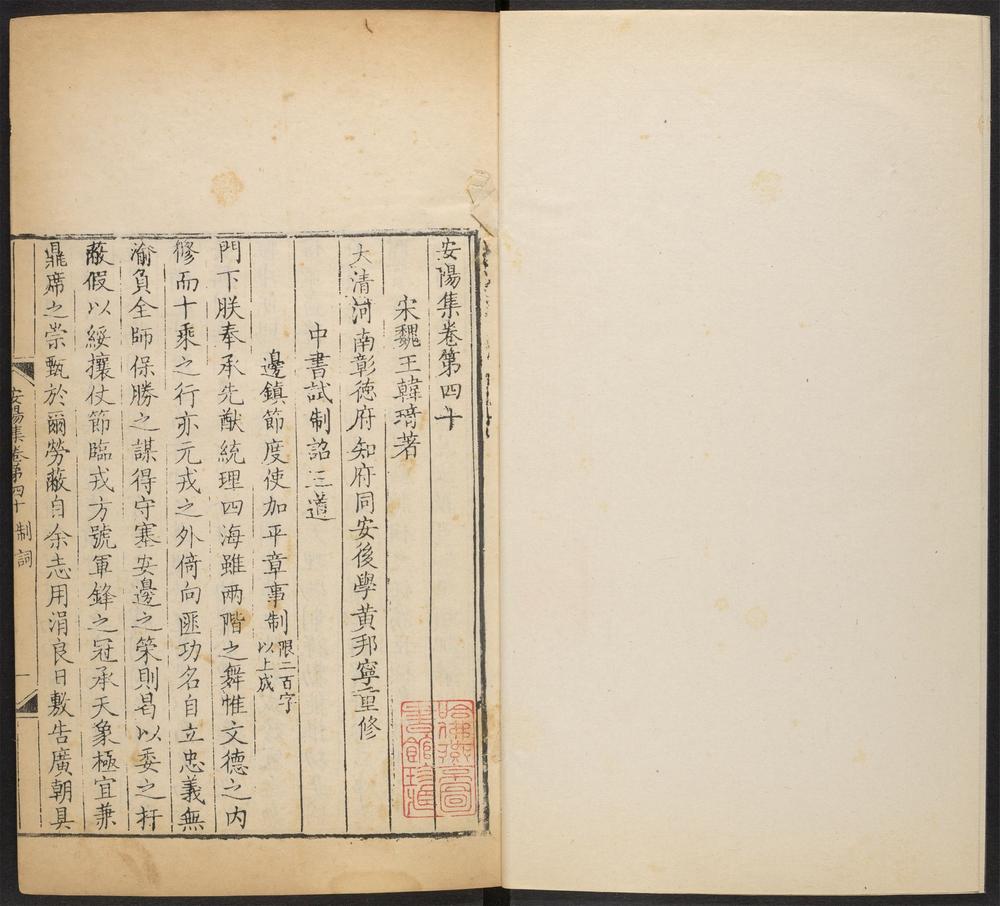 安陽集卷第四十
宋魏王韓琦著
大清河南彰德府知府同安後學黃邦寧重修
中書試制詔三道
邊鎮節度使加平章事制限二百字以上成
門下朕奉承先猷統理四海雖兩階之舞惟文德之內
修而十乘之行亦元戎之外倚向匪功名自立忠義無
渝負全師保勝之謀得守塞安邊之策則曷以委之扞
蔽假以綏攘仗節臨戎方號軍鋒之冠承天象極宜兼
鼎席之崇甄於爾勞蔽自余志用涓良日敷告廣朝具
安陽集卷第四十 制詞 一
哈佛燕京圖書館珍藏